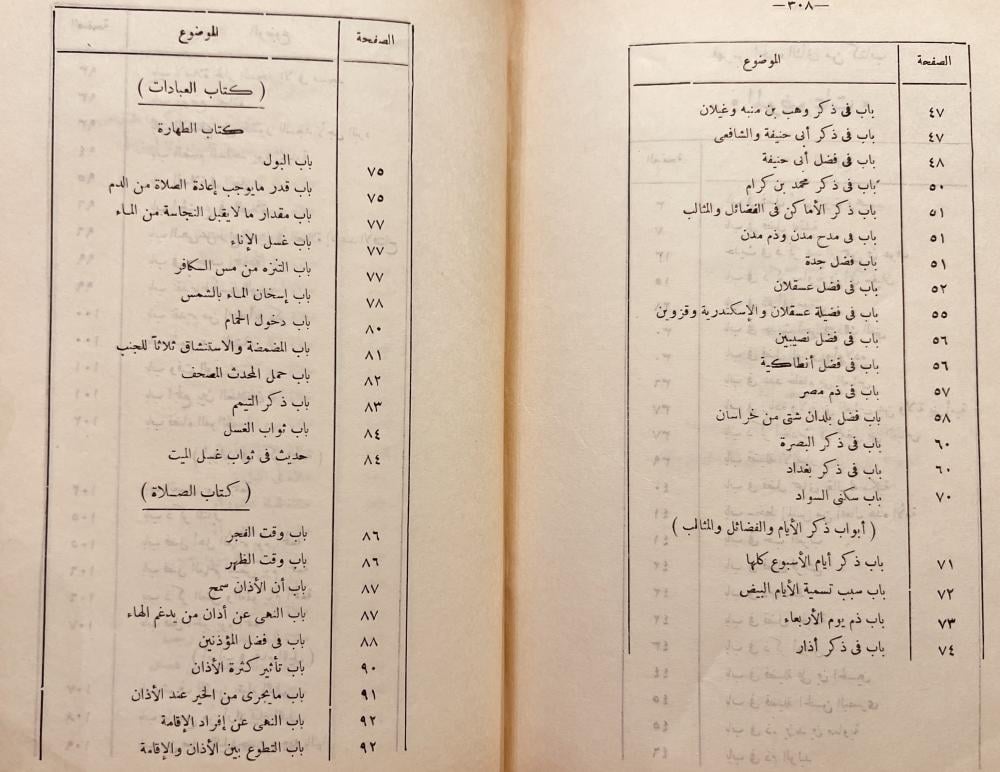 —٣٠٨—
الصفحة الموضوع
٤٧ باب فى ذكر وهب بن منبه وغيلان
٤٧ باب فى ذكر أبى حنيفة والشافعى
٤٨ باب فى فضل أبى حنيفة
٥٠ باب فى ذكر محمد بن كرام
٥١ باب ذكر الأماكن فى الفضائل والمثالب
٥١ باب فى مدح مدن وذم مدن
٥١ باب فضل جدة
٥٢ باب فى فضل عسقلان
٥٥ باب فى فضيلة عسقلان والإسكندرية وقزوين
٥٦ باب فى فضل نصيبين
٥٦ باب فى فضل أنطاكية
٥٧ باب فى ذم مصر
٥٨ باب فضل بلدان شتى من خراسان
٦٠ باب فى ذكر البصرة
٦٠ باب فى ذكر بغداد
٧٠ باب سكنى السواد
( أبواب ذكر الأيام والفضائل والمثالب )
٧١ باب ذكر أيام الأسبوع كلها
٧٢ باب سبب تسمية الأيام البيض
٧٣ باب ذم يوم الأربعاء
٧٤ باب فى ذكر أذار
الصفحة الموضوع
( كتاب العبادات )
كتاب الطهارة
٧٥ باب البول
٧٥ باب قدر مايوجب إعادة الصلاة من الدم
٧٧ باب مقدار ما لايقبل النجاسة من الماء
٧٧ باب غسل الإناء
٧٧ باب التنزه من مس الكافر
٧٨ باب إسخان الماء بالشمس
٨٠ باب دخول الحمام
٨١ باب المضمضة والاستنشاق ثلاثاً للجنب
٨٢ باب حمل المحدث المصحف
٨٣ باب ذكر التيمم
٨٤ باب ثواب الغسل
٨٤ حديث فى ثواب غسل الميت
( كتاب الصلاة )
٨٦ باب وقت الفجر
٨٦ باب وقت الظهر
٨٧ باب أن الأذان سمح
٨٧ باب النهى عن أذان من يدغم الهاء
٨٨ باب فى فضل المؤذنين
٩٠ باب تأثير كثرة الأذان
٩١ باب مايجرى من الخير عند الأذان
٩٢ باب النهى عن إفراد الإقامة
٩٢ باب التطوع بين الأذان والإقامة